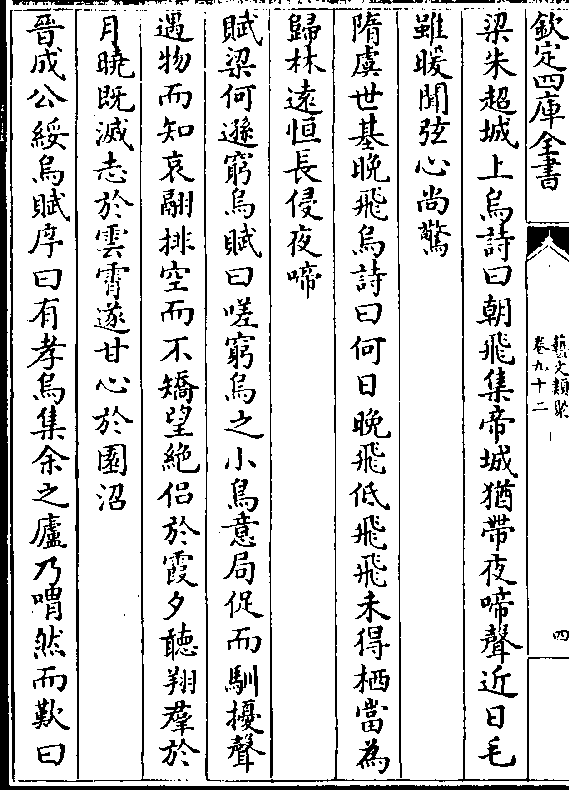 欽定四庫全書
藝文類聚
卷九十二
四
梁朱超城上烏詩曰朝飛集帝城猶帶夜啼聲近日毛
雖暖聞弦心尚驚
隋虞世基晚飛烏詩曰何日晚飛低飛飛未得栖當為
歸林遠恒長侵夜啼
賦梁何遜窮烏賦曰嗟窮烏之小鳥意局促而馴擾聲
遇物而知哀翮排空而不矯望絶侣於霞夕聽翔羣於
月曉既滅志於雲霄遂甘心於園沼
晉成公綏烏賦序曰有孝烏集余之廬乃喟然而歎曰